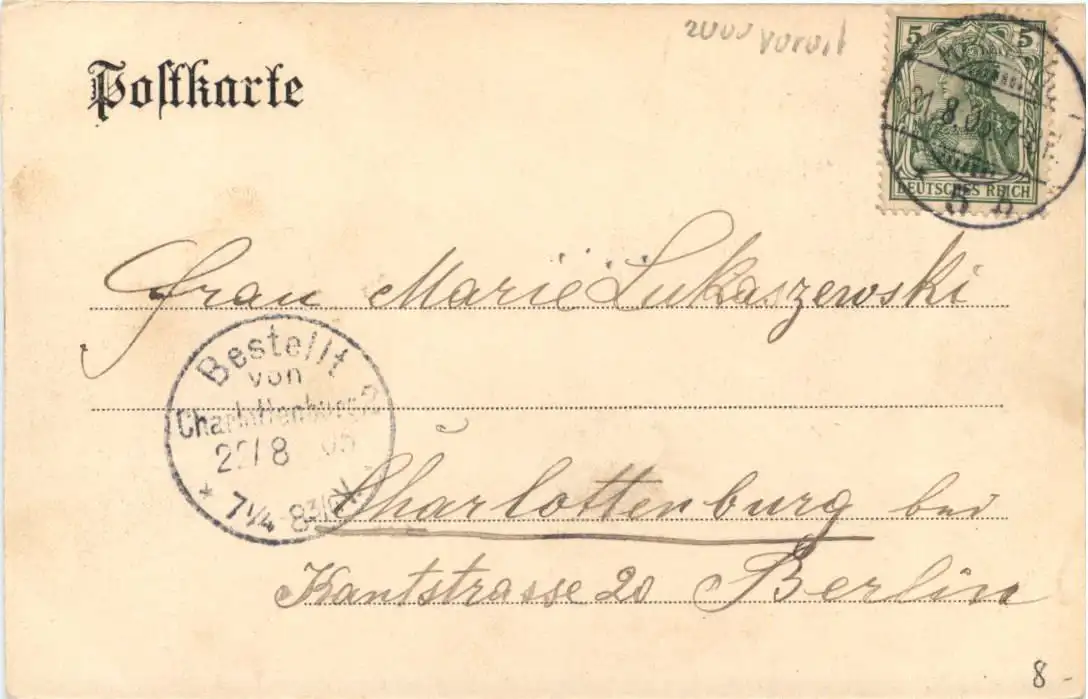 Postkarte
5 5
21.8.05
DEUTSCHES REICH
Frau Marie Lukaszewski
Bestellt
von
Charlottenburg 2
22/8 05
* 7¼-8¾ V.
Charlottenburg bei
Kantstrasse 20 Berlin
8-